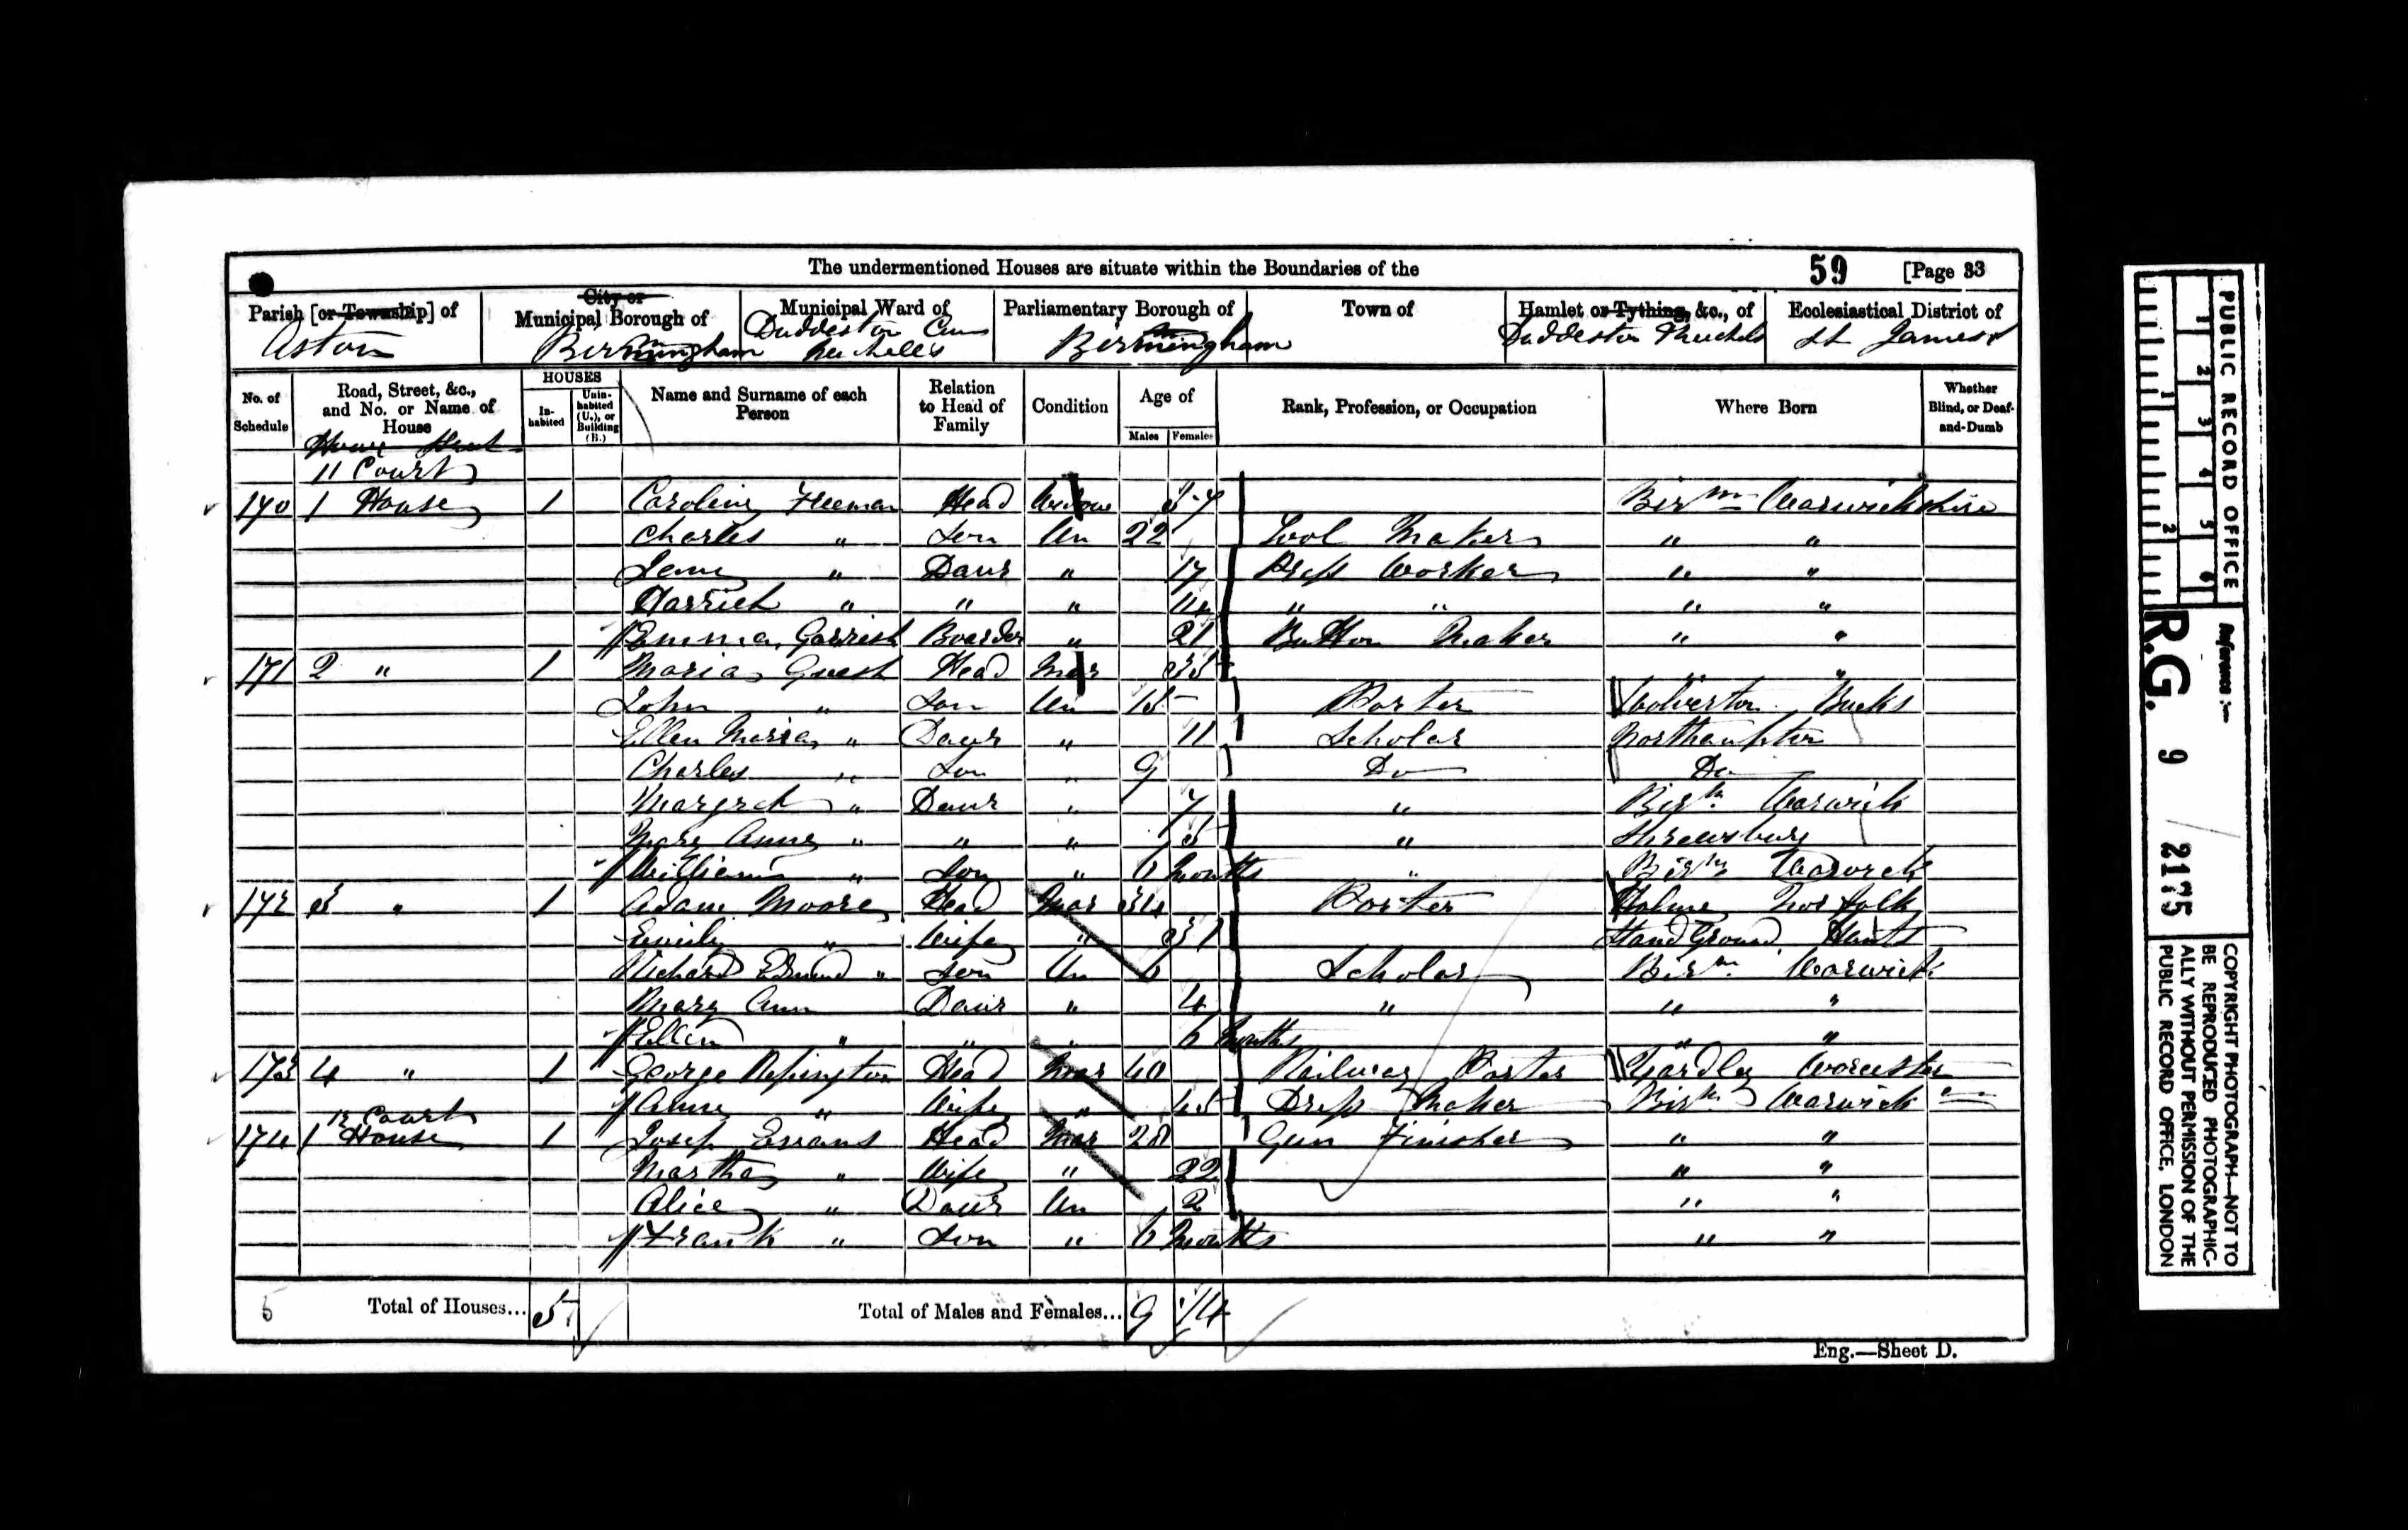 The undermentioned Houses are situate within the Boundaries of the 59 [Page 33
Parish [or Township] of Aston
City or Municipal Borough of Birmingham
Municipal Ward of Duddeston Cum Nechells
Parliamentary Borough of Birmingham
Town of
Hamlet or Tything, &c., of Duddeston Nechels
Ecclesiastical District of St James
No. of Schedule
Road, Street, &c., and No. or Name of House
HOUSES
Inhabited
Uninhabited (U.), or Building (B.)
Name and Surname of each Person
Relation to Head of Family
Condition
Age of
Males
Females
Rank, Profession, or Occupation
Where Born
Whether Blind, or Deaf-and-Dumb
11 Court
170 1 House 1 Caroline Freeman Head Widow 57 Birm Warwickshire
Charles " Son Un 22 Tool Maker " "
Jane " Daur " 17 Press Worker " "
Harriet " " " 14 " " " "
Emma Gerrish Boarder " 21 Button Maker " "
171 2 " 1 Maria Guest Head Mar 35 " "
John " Son Un 15 Porter Wolverton Bucks
Ellen Maria " Daur " 11 Scholar Northampton
Charles " Son " 9 Do Do
Margret " Daur " 7 " Birm Warwick
Mary Anne " " " 5 " Shrewsbury
William " Son " 6 Months " Birm Warwick
172 3 " 1 Adam Moore Head Mar 34 Porter Holme Norfolk
Emily " Wife " 31 Stand Ground Hunts
Richard Edmund " Son Un 6 Scholar Birm Warwick
Mary Ann Daur " 4 " " "
Ellen " " " 6 Months " "
173 4 " 1 George Repington Head Mar 40 Railway Porter Yardley Worcester
Anne " Wife " 45 Dress Maker Birm Warwick
12 Court
174 1 House 1 Joseph Evans Head Mar 28 Gun Finisher " "
Martha " Wife " 22 " "
Alice " Daur Un 2 " "
Frank " Son " 6 Months " "
5 Total of Houses... 5 Total of Males and Females... 9 14
Eng.—Sheet D.
PUBLIC RECORD OFFICE
1 2 3 4 5 6
1 2
Reference :-
R.G. 9 / 2175
COPYRIGHT PHOTOGRAPH—NOT TO
BE REPRODUCED PHOTOGRAPHIC-
ALLY WITHOUT PERMISSION OF THE
PUBLIC RECORD OFFICE, LONDON